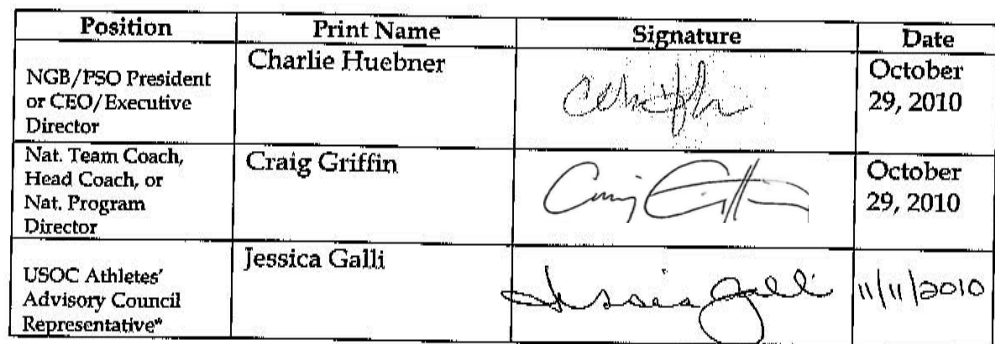 Position Print Name Signature Date
NGB/PSO President
or CEO/Executive
Director
Charlie Huebner
October
29, 2010
Nat. Team Coach,
Head Coach, or
Nat. Program
Director
Craig Griffin
Craig Griffin
October
29, 2010
USOC Athletes'
Advisory Council
Representative*
Jessica Galli
Jessica Galli
11/11/2010